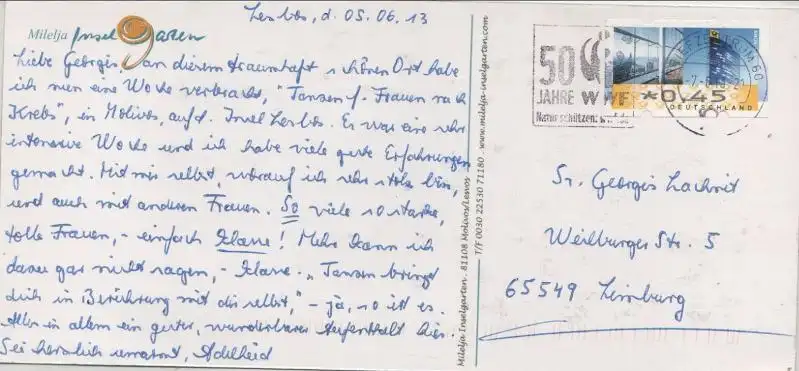 Lesbos, d. 05.06.13
Milelja Inselgarten
Liebe Georgis, an diesem traumhaft schönen Ort habe
ich nun eine Woche verbracht, "Tanzen f. Frauen nach
Krebs", in Molivos, auf d. Insel Lesbos. Es war eine sehr
intensive Woche und ich habe viele gute Erfahrungen
gemacht. Mit mir selbst, worauf ich sehr stolz bin,
und auch mit anderen Frauen. So viele so starke,
tolle Frauen, - einfach Klasse! Mehr kann ich
dazu gar nicht sagen, - Klasse. "Tanzen bringt
dich in Berührung mit dir selbst," - ja, so ist es.
Alles in allem ein guter, wunderbarer Aufenthalt hier.
Sei herzlich umarmt, Adelheid
Milelja Inselgarten . 81108 Molivos/Lesvos
T/F 0030 22530 71180 . www.milelja-inselgarten.com
50
JAHRE WWF
Natur schützen:
*0,45
DEUTSCHLAND
Sr. Georgis
Weilburger Str. 5
65549 Limburg